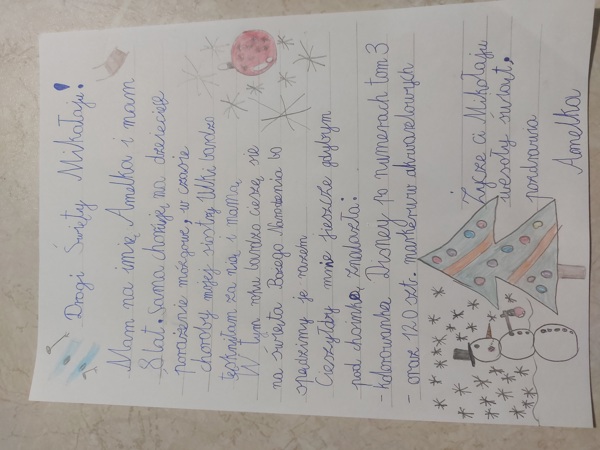 Drogi Święty Mikołaju!
Mam na imię Amelka i mam
8 lat. Sama choruję na dziecięce
porażenie mózgowe, w czasie
choroby mojej siostry Ulki bardzo
tęskniłam za nią i mamą
W tym roku bardzo cieszę się
na święta Bożego Narodzenia bo
spędzimy je razem
Cieszyłdby mnie jeszcze gdybym
pod choinką znalazła:
- kolorowanka Disney po numerach tom 3
- oraz 120 szt. markeruw akwarelowych
Życze ci Mikołaju
wesoły świąt.
pozdrawia
Amelka